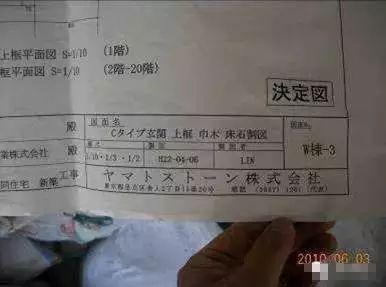 上框平面図 S=1/10 (1階)
框平面図 S=1/10 (2階-20階)
決定図
殿
図面名
Cタイプ玄関 上框 巾木 床石割図
図面No
業株式会社 殿
1/10・1/3・1/2
H22-04-06
LIN
W棟-3
同住宅 新築 工事
ヤマトストーン株式会社
2010.06.03